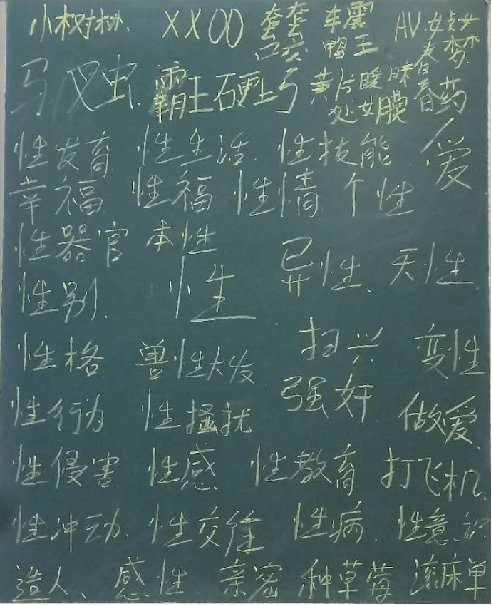 小树林 XXOO 套套 车震 AV女
鸭王 梦
马 爬虫 霸王硬上弓 黄片 暧昧 春药
处女膜
性发育 性生活 性技能 爱
幸福 性福 性情 个性
性器官 本性 异性 天性
性别 性
性格 兽性大发 扫兴 变性
性行为 性骚扰 强奸 做爱
性侵害 性感 性教育 打飞机
性冲动 性交往 性病 性意识
造人 感性 亲密 种草莓 滚床单